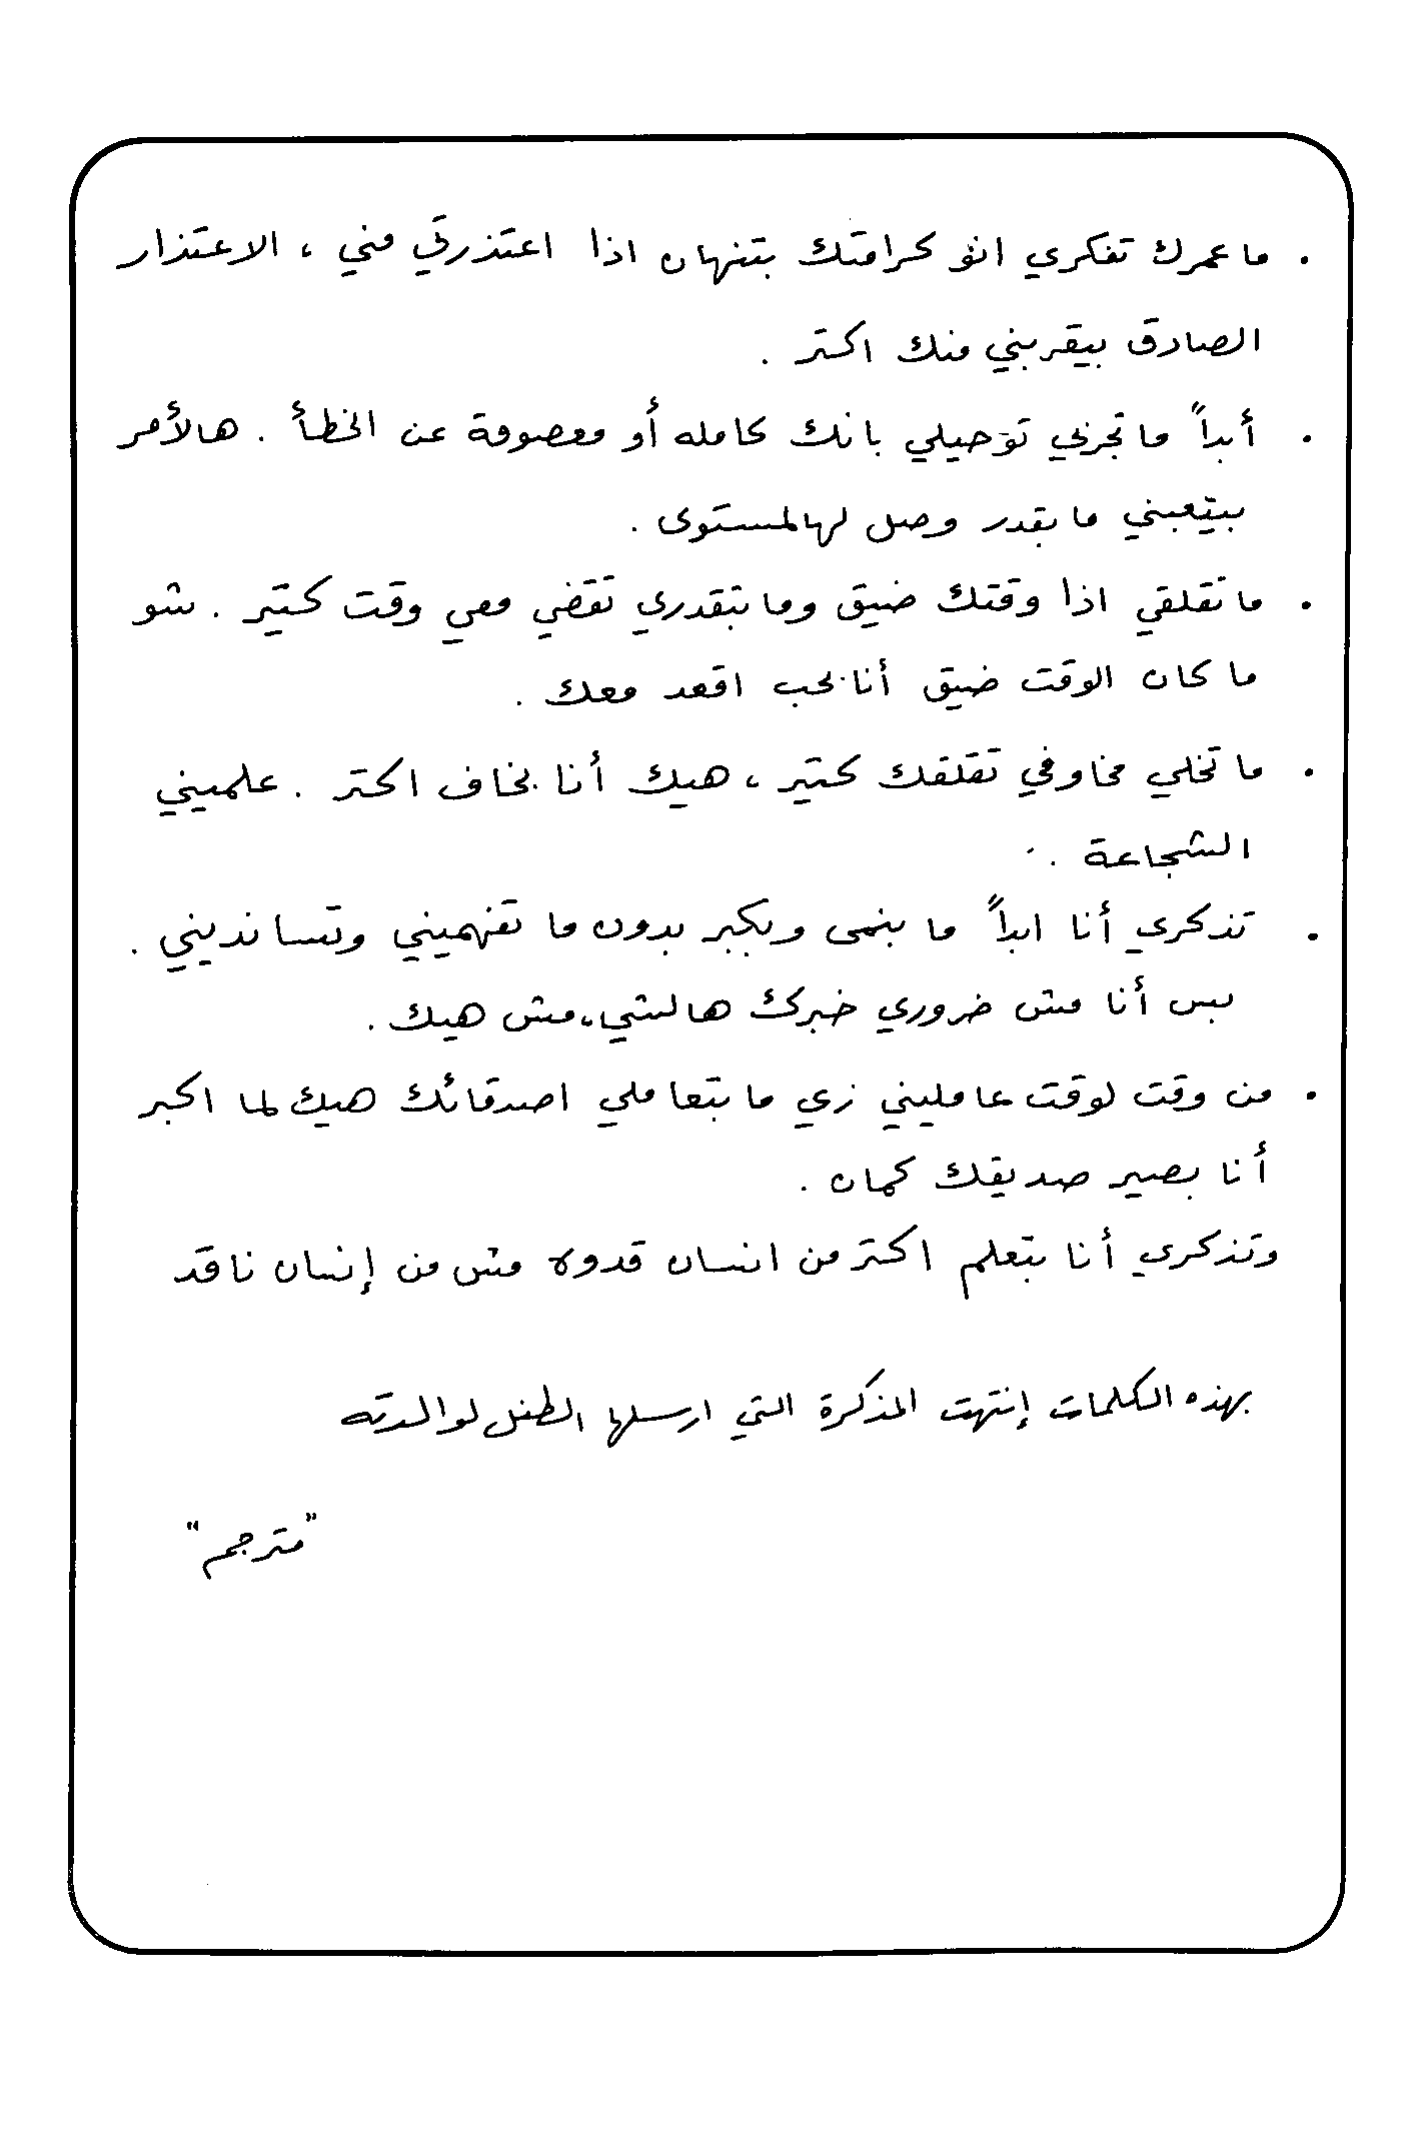 . ما عمرك تفكري انو كرامتك بتنهان اذا اعتذرتي مني ، الاعتذار
الصادق بيقربني منك اكتر .
. أبداً ما تجربي توحيلي بانك كامله أو معصومة عن الخطأ . هالأمر
بيتعبني ما بقدر وصل لهالمستوى .
. ما تقلقي اذا وقتك ضيق وما بتقدري تقضي معي وقت كتير . شو
ما كان الوقت ضيق أنا بحب اقعد معك .
. ما تخلي مخاوفي تقلقك كتير ، هيك أنا بخاف اكتر . علميني
الشجاعة .
. تذكري أنا ابداً ما بنمى وبكبر بدون ما تفهميني وتسانديني .
بس أنا مش ضروري خبرك هالشي ، مش هيك .
. من وقت لوقت عامليني زي ما بتعاملي اصدقائك هيك لما اكبر
أنا بصير صديقك كمان .
وتذكري أنا بتعلم اكتر من انسان قدوه مش من إنسان ناقد
بهذه الكلمات إنتهت المذكرة التي ارسلها الطفل لوالدته
"مترجم"